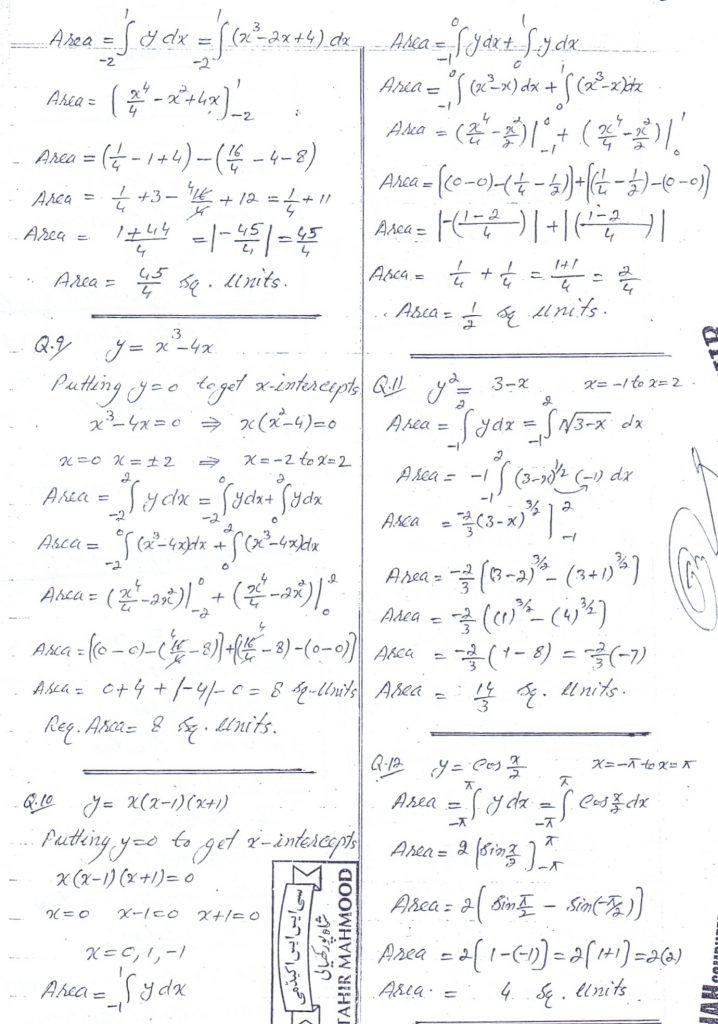 Area = ∫₋₂¹ y dx = ∫₋₂¹ (x³-2x+4) dx
Area = (x⁴/4 - x² + 4x)₋₂¹
Area = (1/4 - 1 + 4) - (16/4 - 4 - 8)
Area = 1/4 + 3 - 16/4 + 12 = 1/4 + 11
Area = 1+44/4 = |-45/4| = 45/4
Area = 45/4 sq. Units.
Q.9 y = x³-4x
Putting y=0 to get x-intercepts
x³-4x=0 ⇒ x(x²-4)=0
x=0 x=±2 ⇒ x=-2 to x=2
Area = ∫₋₂² y dx = ∫₋₂⁰ y dx + ∫₀² y dx
Area = ∫₋₂⁰ (x³-4x)dx + ∫₀² (x³-4x)dx
Area = (x⁴/4 - 2x²)|₋₂⁰ + (x⁴/4 - 2x²)|₀²
Area = |(0-0)-(16/4 - 8)| + |(16/4 - 8)-(0-0)|
Area = 0+4+|-4|-0 = 8 sq-Units
Req. Area = 8 sq. Units.
Q.10 y = x(x-1)(x+1)
Putting y=0 to get x-intercepts
x(x-1)(x+1)=0
x=0 x-1=0 x+1=0
x=0,1,-1
Area = ∫₋₁¹ y dx
سی ایس ایس اکیڈمی
شاہ پور کھیالی
TAHIR MAHMOOD
Area = ∫₋₁⁰ y dx + ∫₀¹ y dx
Area = ∫₋₁⁰ (x³-x)dx + ∫₀¹ (x³-x)dx
Area = (x⁴/4 - x²/2)|₋₁⁰ + (x⁴/4 - x²/2)|₀¹
Area = |(0-0)-(1/4 - 1/2)| + |(1/4 - 1/2)-(0-0)|
Area = |-(1-2/4)| + |(1-2/4)|
Area = 1/4 + 1/4 = 1+1/4 = 2/4
Area = 1/2 sq Units.
Q.11 y² = 3-x x=-1 to x=2
Area = ∫₋₁² y dx = ∫₋₁² √3-x dx
Area = -1∫₋₁² (3-x)^1/2 (-1) dx
Area = -2/3 (3-x)^3/2 ]₋₁²
Area = -2/3 [(3-2)^3/2 - (3+1)^3/2]
Area = -2/3 ((1)^3/2 - (4)^3/2)
Area = -2/3 (1-8) = -2/3 (-7)
Area = 14/3 sq. Units.
Q.12 y = Cos x/2 x=-π to x=π
Area = ∫₋π^π y dx = ∫₋π^π Cos x/2 dx
Area = 2 [Sin x/2]₋π^π
Area = 2 [Sin π/2 - Sin(-π/2)]
Area = 2[1-(-1)] = 2[1+1] = 2(2)
Area = 4 sq. Units